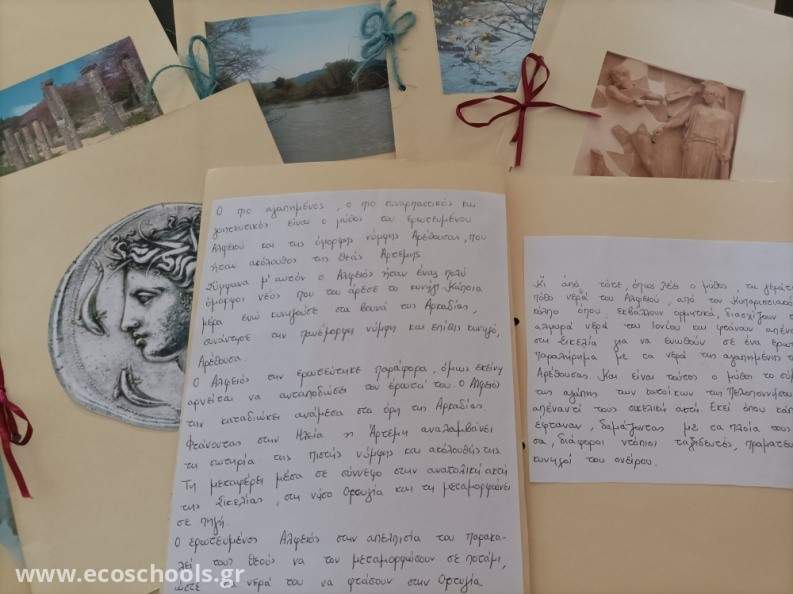 Ο πιο αγαπημένος, ο πιο συναρπαστικός και
γοητευτικός είναι ο μύθος του ερωτευμένου
Αλφειού και της όμορφης νύμφης Αρέθουσας, που
ήταν ακόλουθος της θεάς Άρτεμης
Σύμφωνα μ' αυτόν ο Αλφειός ήταν ένας πολύ
όμορφος νέος που του άρεσε το κυνήγι. Κάποια
μέρα ενώ κυνηγούσε στα βουνά της Αρκαδίας,
συνάντησε την πανέμορφη νύμφη και επίσης κυνηγό,
Αρέθουσα.
Ο Αλφειός την ερωτεύτηκε παράφορα, όμως εκείνη
αρνείται να ανταποδώσει τον έρωτά του. Ο Αλφειός
την καταδιώκει ανάμεσα στα όρη της Αρκαδίας
Φτάνοντας στην Ηλεία η Άρτεμη αναλαμβάνει
τη σωτηρία της πιστής νύμφης και ακόλουθής της.
Τη μεταφέρει μέσα σε σύννεφο στην ανατολική ακτή
της Σικελίας, στη νήσο Ορτυγία και τη μεταμορφώνει
σε πηγή.
Ο ερωτευμένος Αλφειός στην απελπισία του παρακα-
λεί τους θεούς να τον μεταμορφώσουν σε ποτάμι,
ώστε τα νερά του να φτάσουν στην Ορτυγία
Κι από τότε, όπως λέει ο μύθος, τα γεμάτα
πόθο νερά του Αλφειού, από τον Κυπαρισσιακό
κόλπο όπου εκβάλλουν ορμητικά, διασχίζουν τ
αλμυρά νερά του Ιονίου και φτάνουν απένα
στη Σικελία για να ενωθούν σε ένα ερωτ
παραλήρημα με τα νερά της αγαπημένης τ
Αρέθουσας. Και είναι τούτος ο μύθος το σύ
της αγάπης των κατοίκων της Πελοποννήσου
απέναντί τους σικελική ακτή. Εκεί όπου κάπ
έφταναν, δαμάζοντας με τα πλοία τους
σα, διάφοροι ντόπιοι ταξιδευτές, πραματευ
κυνηγοί του ονείρου.
www.ecoschools.gr